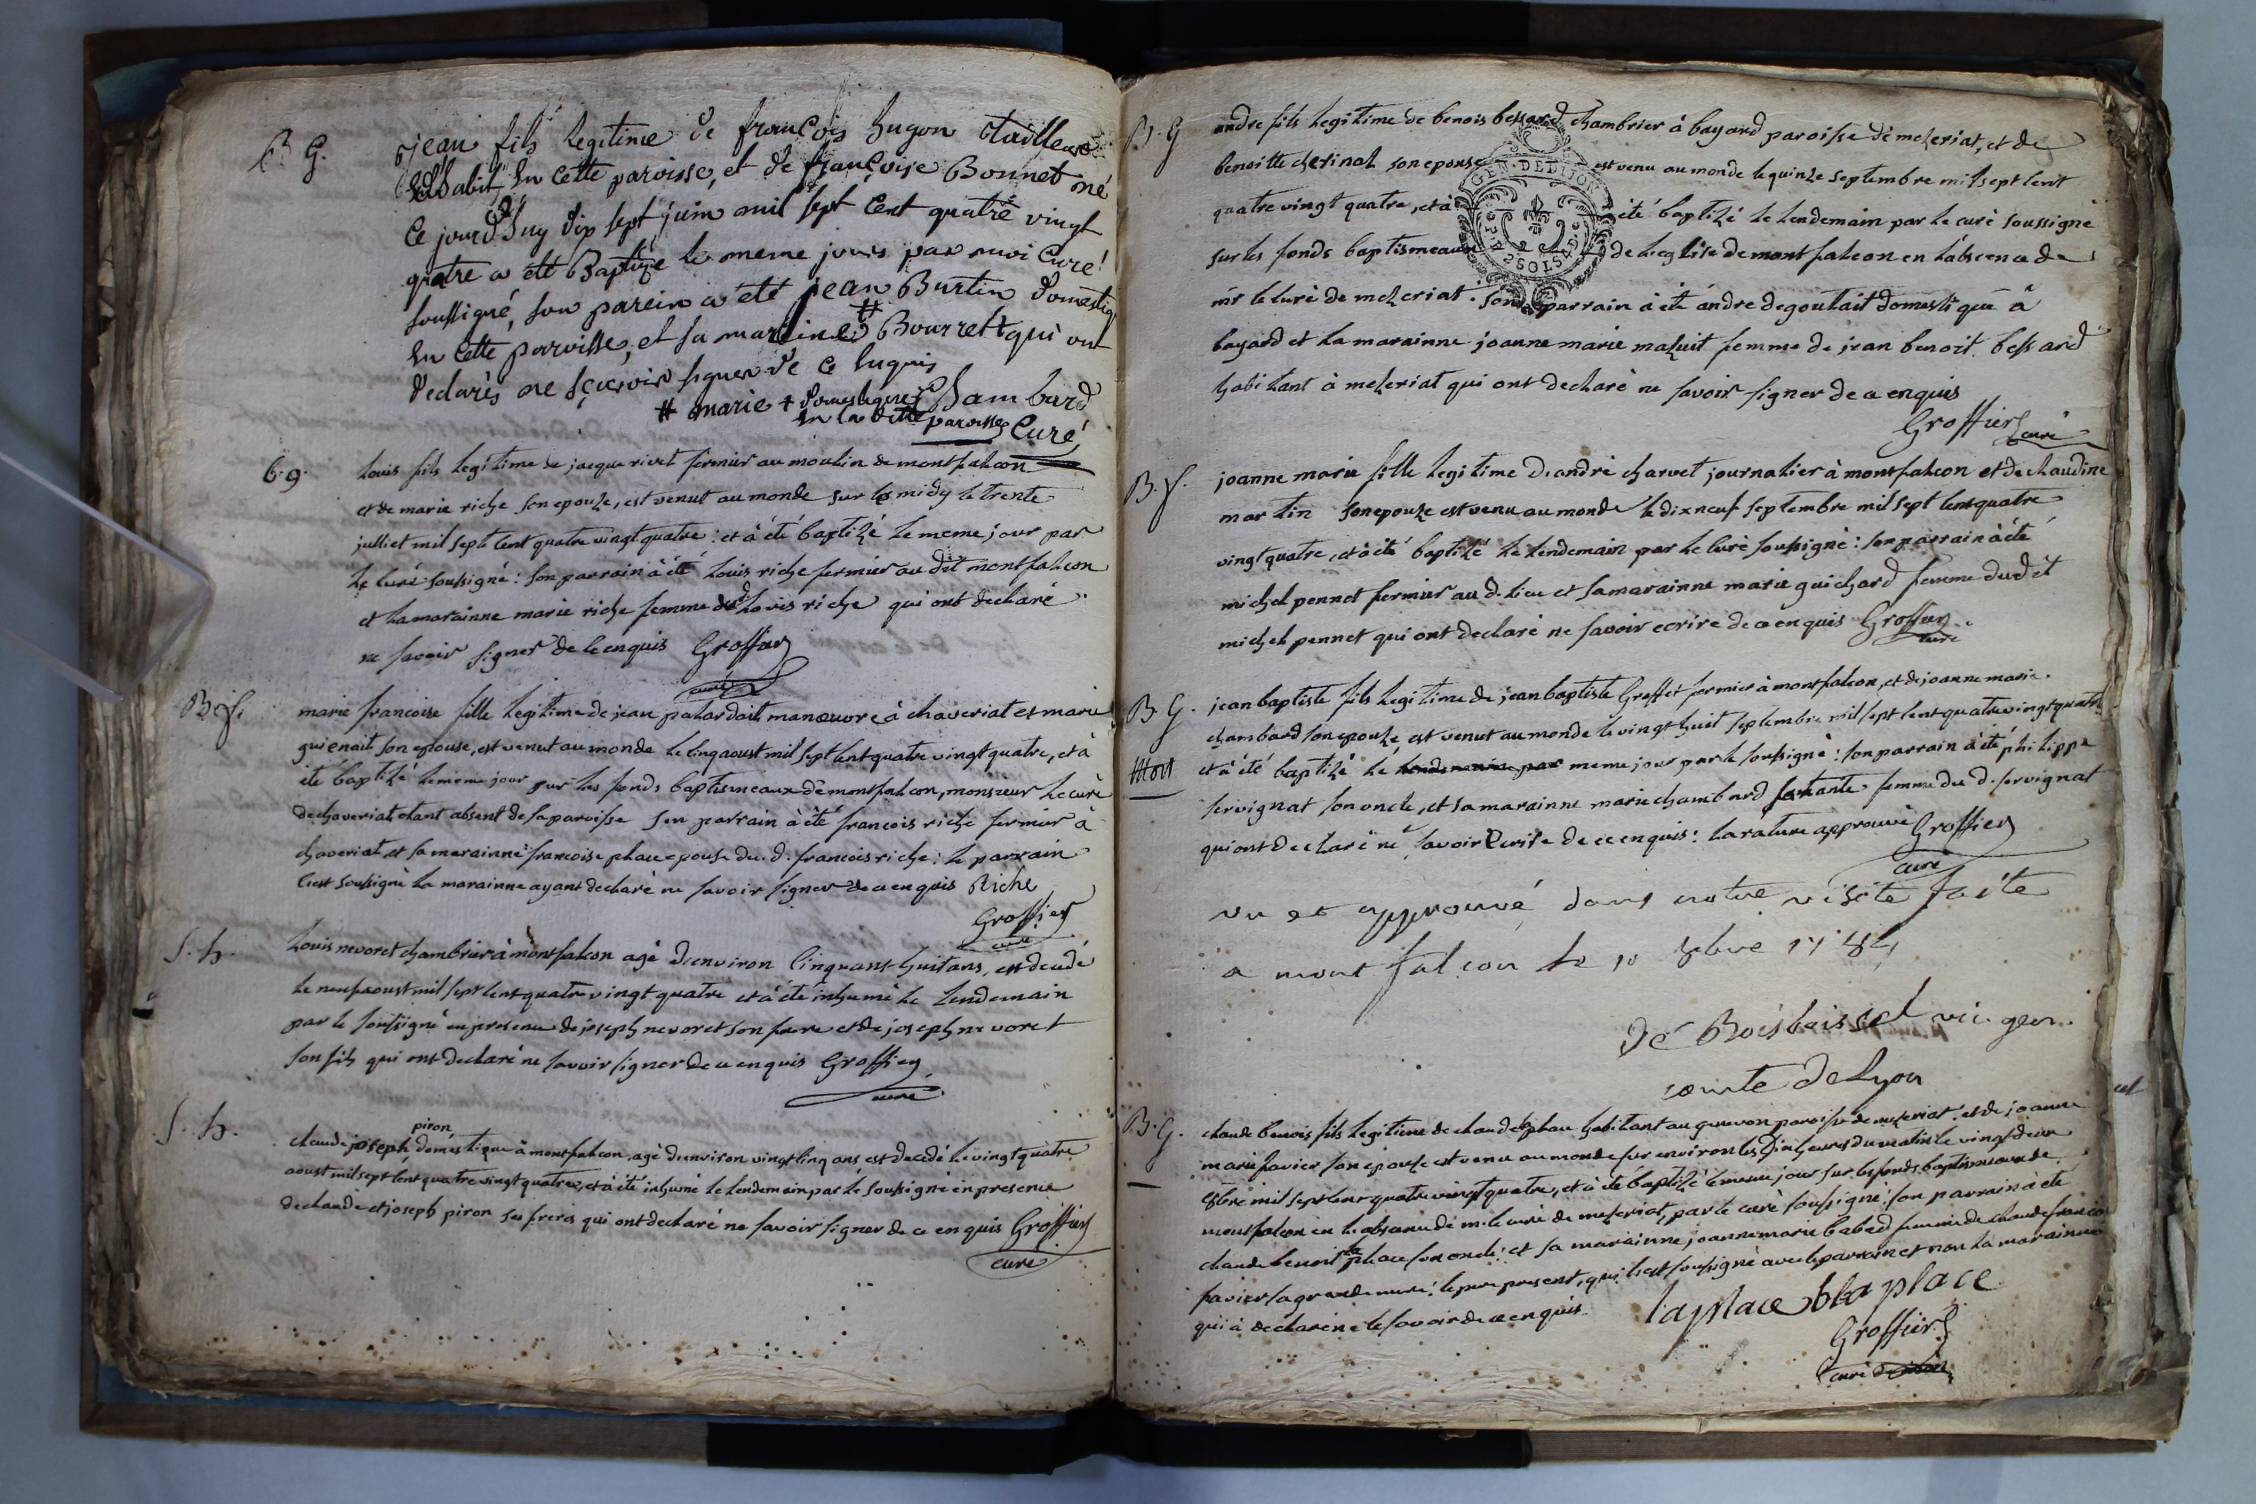 B. G.
jean fils legitime de françois hugon tailleur
habit. en cette paroisse, et de françoise Bonnet né
ce jourd'huy dix sept juin mil sept cent quatre vingt
quatre a eté Baptizé le meme jour par moi Curé
soussigné, son parein a eté jean Burtin domestiq
en cette paroisse, et sa mareine # Bourret qui ont
declarés ne sçavoir signer de ce enquis
# marie + domestique
en la ditte paroisse
Chambard
Curé
b. g.
louis fils legitime de jacque rivet fermier au moulin de montfalcon
et de marie riche son epouze, est venut au monde sur les midy le trente
julliet mil sept cent quatre vingt quatre : et à été baptizé le meme jour par
le curé soussigné : son parrain à été louis riche fermier au dit montfalcon
et la marainne marie riche femme dud louis riche qui ont declaré
ne savoir signer de ce enquis Groffier
curé
B. f.
marie francoise fille legitime de jean palardait manœuvre à chaveriat et marie
guienait son epouse, est venut au monde le cinq aoust mil sept cent quatre vingt quatre, et à
été baptizé le meme jour sur les fonds baptismeaux de montfalcon, monsieur le curé
de chaveriat etant absent de sa paroisse son parrain à été francois riche fermier à
chaveriat et sa marainne francoise phau epouse du. d. francois riche : le parrain
c'est soussigné la marainne ayant declaré ne savoir signer de ce enquis Riche
Groffier
curé
S. h.
louis nevoret chambrier à montfalcon agé d'environ cinquant huit ans, est decedé
le neuf aoust mil sept cent quatre vingt quatre et à été inhumé le lendemain
par le soussigné en presence de joseph nevoret son frere et de joseph nevoret
son fils qui ont declaré ne savoir signer de ce enquis Groffier
curé
S. h.
piron
claude joseph domestique à montfalcon, agé d'environ vingt cinq ans est decedé le vingt quatre
aoust mil sept cent quatre vingt quatre, et à été inhumé le lendemain par le soussigné en presence
de claude et joseph piron ses freres qui ont declaré ne savoir signer de ce enquis Groffier
curé
B. G
andre fils legitime de benois bessard chambrier à bayard paroisse de mezeriat, et de
benoitte son epouse est venu au monde le quinze septembre mil sept cent
quatre vingt quatre, et à été baptizé le lendemain par le curé soussigné
sur les fonds baptismeaux de l'eglise de montfalcon en l'absence de
mr le curé de mezeriat. son parrain à été andre degoutait domestique à
bayard et la marainne joanne marie mazuit femme de jean benoit bessard
habitant à mezeriat qui ont declaré ne savoir signer de ce enquis
Groffier
curé
GEN. DE DIJON
B. f.
joanne marie fille legitime d'andré charvet journalier à montfalcon et de claudine
martin son epouze est venu au monde le dix neuf septembre mil sept cent quatre
vingt quatre, et à été baptizé le lendemain par le curé soussigné : son parrain à été
michel pennet fermier au d. lieu et sa marainne marie guichard femme dudit
michel pennet qui ont declaré ne savoir ecrire de ce enquis Groffier
curé
B. G.
Mort
jean baptiste fils legitime de jean baptiste Groffet fermier à montfalcon, et de joanne marie
chambard son epouze est venut au monde le vingt huit septembre mil sept cent quatre vingt quatre
et à été baptizé le meme jour par le soussigné : son parrain à été philippe
servignat son oncle, et sa marainne marie chambard sa tante femme du d. servignat
qui ont declaré ne savoir ecrire de ce enquis : la rature approuvé Groffier
curé
vu et approuvé dans notre visite faite
a mont falcon le 10 8bre 1784
De Boisboissel vic. gen.
comte de Lyon
B. G.
claude benois fils legitime de claude laplace habitant au paroisse de mezeriat et de joanne
marie favier son epouse est venu au monde sur environ les dix heures du matin le vingt deux
8bre mil sept cent quatre vingt quatre, et à été baptizé le meme jour sur les fonds baptismeaux de
montfalcon en l'absence de m. le curé de mezeriat, par le curé soussigné : son parrain à été
claude benoit laplace son oncle : et sa marainne joanne marie babad femme de claude francois
favier sa grande mere : le pere present, qui c'est soussigné avec le parrain et non la marainne
qui à declaré ne le savoir de ce enquis laplace b laplace
Groffier
curé